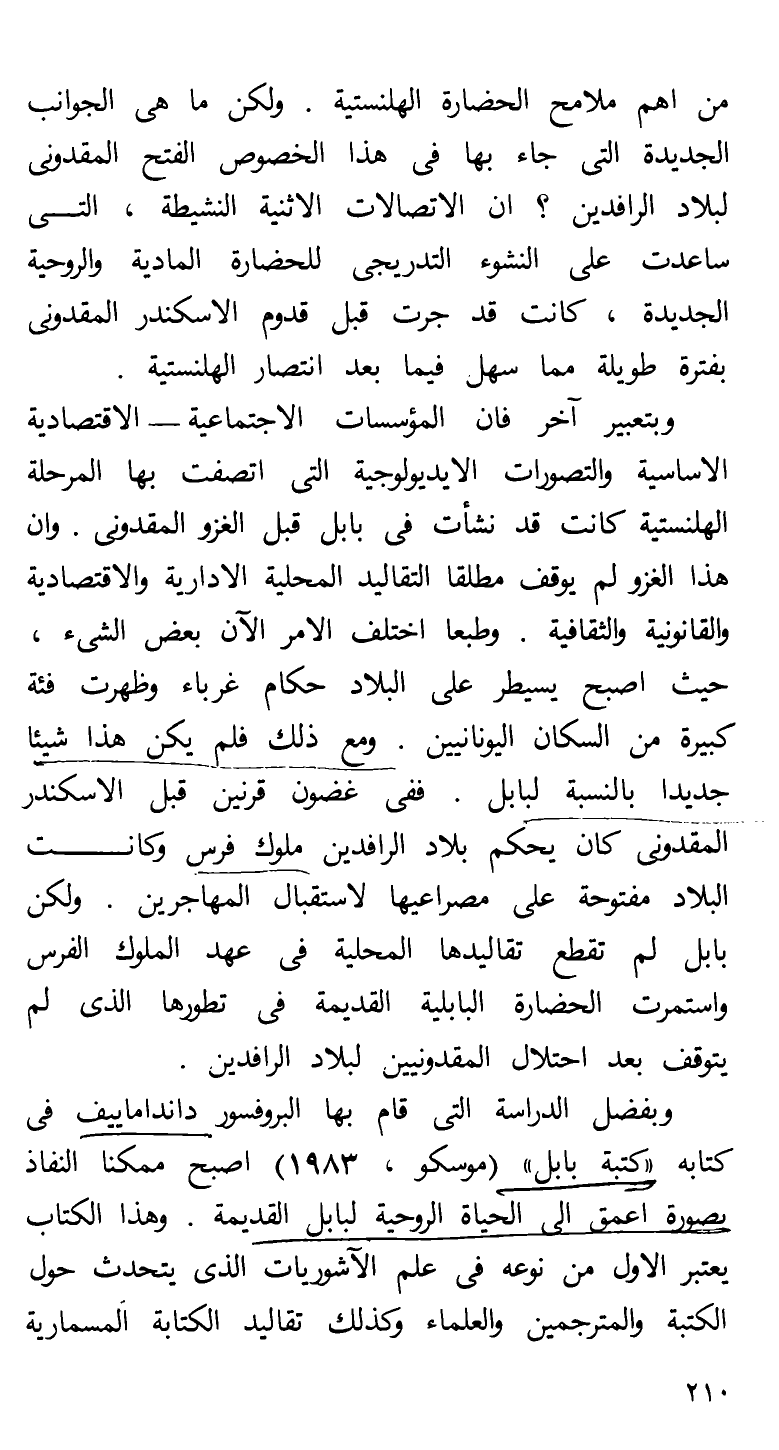 من اهم ملامح الحضارة الهلنستية . ولكن ما هى الجوانب
الجديدة التى جاء بها فى هذا الخصوص الفتح المقدونى
لبلاد الرافدين ؟ ان الاتصالات الاثنية النشيطة ، التـــى
ساعدت على النشوء التدريجى للحضارة المادية والروحية
الجديدة ، كانت قد جرت قبل قدوم الاسكندر المقدونى
بفترة طويلة مما سهل فيما بعد انتصار الهلنستية .
وبتعبير آخر فان المؤسسات الاجتماعية — الاقتصادية
الاساسية والتصورات الايديولوجية التى اتصفت بها المرحلة
الهلنستية كانت قد نشأت فى بابل قبل الغزو المقدونى . وان
هذا الغزو لم يوقف مطلقا التقاليد المحلية الادارية والاقتصادية
والقانونية والثقافية . وطبعا اختلف الامر الآن بعض الشىء ،
حيث اصبح يسيطر على البلاد حكام غرباء وظهرت فئة
كبيرة من السكان اليونانيين . ومع ذلك فلم يكن هذا شيئا
جديدا بالنسبة لبابل . ففى غضون قرنين قبل الاسكندر
المقدونى كان يحكم بلاد الرافدين ملوك فرس وكانـــــــت
البلاد مفتوحة على مصراعيها لاستقبال المهاجرين . ولكن
بابل لم تقطع تقاليدها المحلية فى عهد الملوك الفرس
واستمرت الحضارة البابلية القديمة فى تطورها الذى لم
يتوقف بعد احتلال المقدونيين لبلاد الرافدين .
وبفضل الدراسة التى قام بها البروفسور دانداماييف فى
كتابه «كتبة بابل» (موسكو ، ١٩٨٣) اصبح ممكنا النفاذ
بصورة اعمق الى الحياة الروحية لبابل القديمة . وهذا الكتاب
يعتبر الاول من نوعه فى علم الآشوريات الذى يتحدث حول
الكتبة والمترجمين والعلماء وكذلك تقاليد الكتابة المسمارية
٢١٠